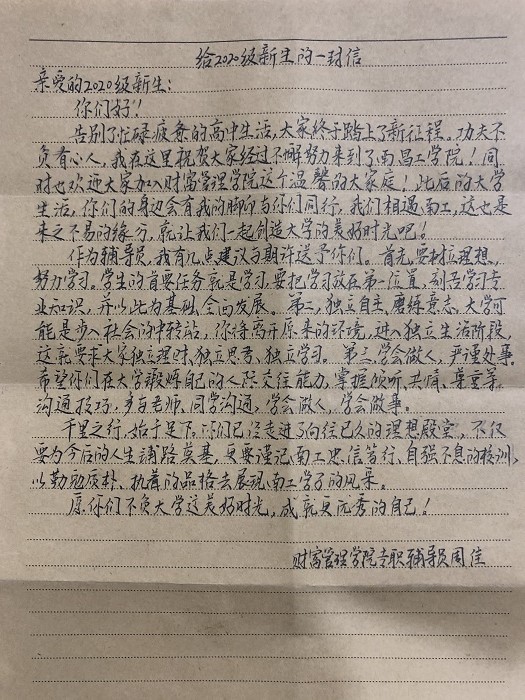 给2020级新生的一封信
亲爱的2020级新生：
你们好！
告别了忙碌疲惫的高中生活，大家终于踏上了新征程。功夫不
负有心人，我在这里祝贺大家经过不懈努力来到了南昌工学院！同
时也欢迎大家加入财富管理学院这个温馨的大家庭！此后的大学
生活，你们的身边会有我的脚印与你们同行，我们相遇南工，这也是
来之不易的缘分，就让我们一起创造大学的美好时光吧！
作为辅导员，我有几点建议与期许送予你们。首先，要树立理想，
努力学习。学生的首要任务就是学习，要把学习放在第一位置，刻苦学习专
业知识，并以此为基础，全面发展。第二，独立自主、磨练意志。大学可
能是步入社会的中转站，你将离开原来的环境，进入独立生活阶段，
这就要求大家独立理财、独立思考、独立学习。第三，学会做人，严谨处事。
希望你们在大学锻炼自己的人际交往能力，掌握倾听、共情、尊重等
沟通技巧，多与老师、同学沟通，学会做人，学会做事。
千里之行，始于足下。你们已经走进了向往已久的理想殿堂，不仅
要为今后的人生铺路奠基，更要谨记南工忠信笃行、自强不息的校训，
以勤勉质朴、执着的品格去展现南工学子的风采。
愿你们不负大学这美好时光，成就更优秀的自己！
财富管理学院专职辅导员周佳